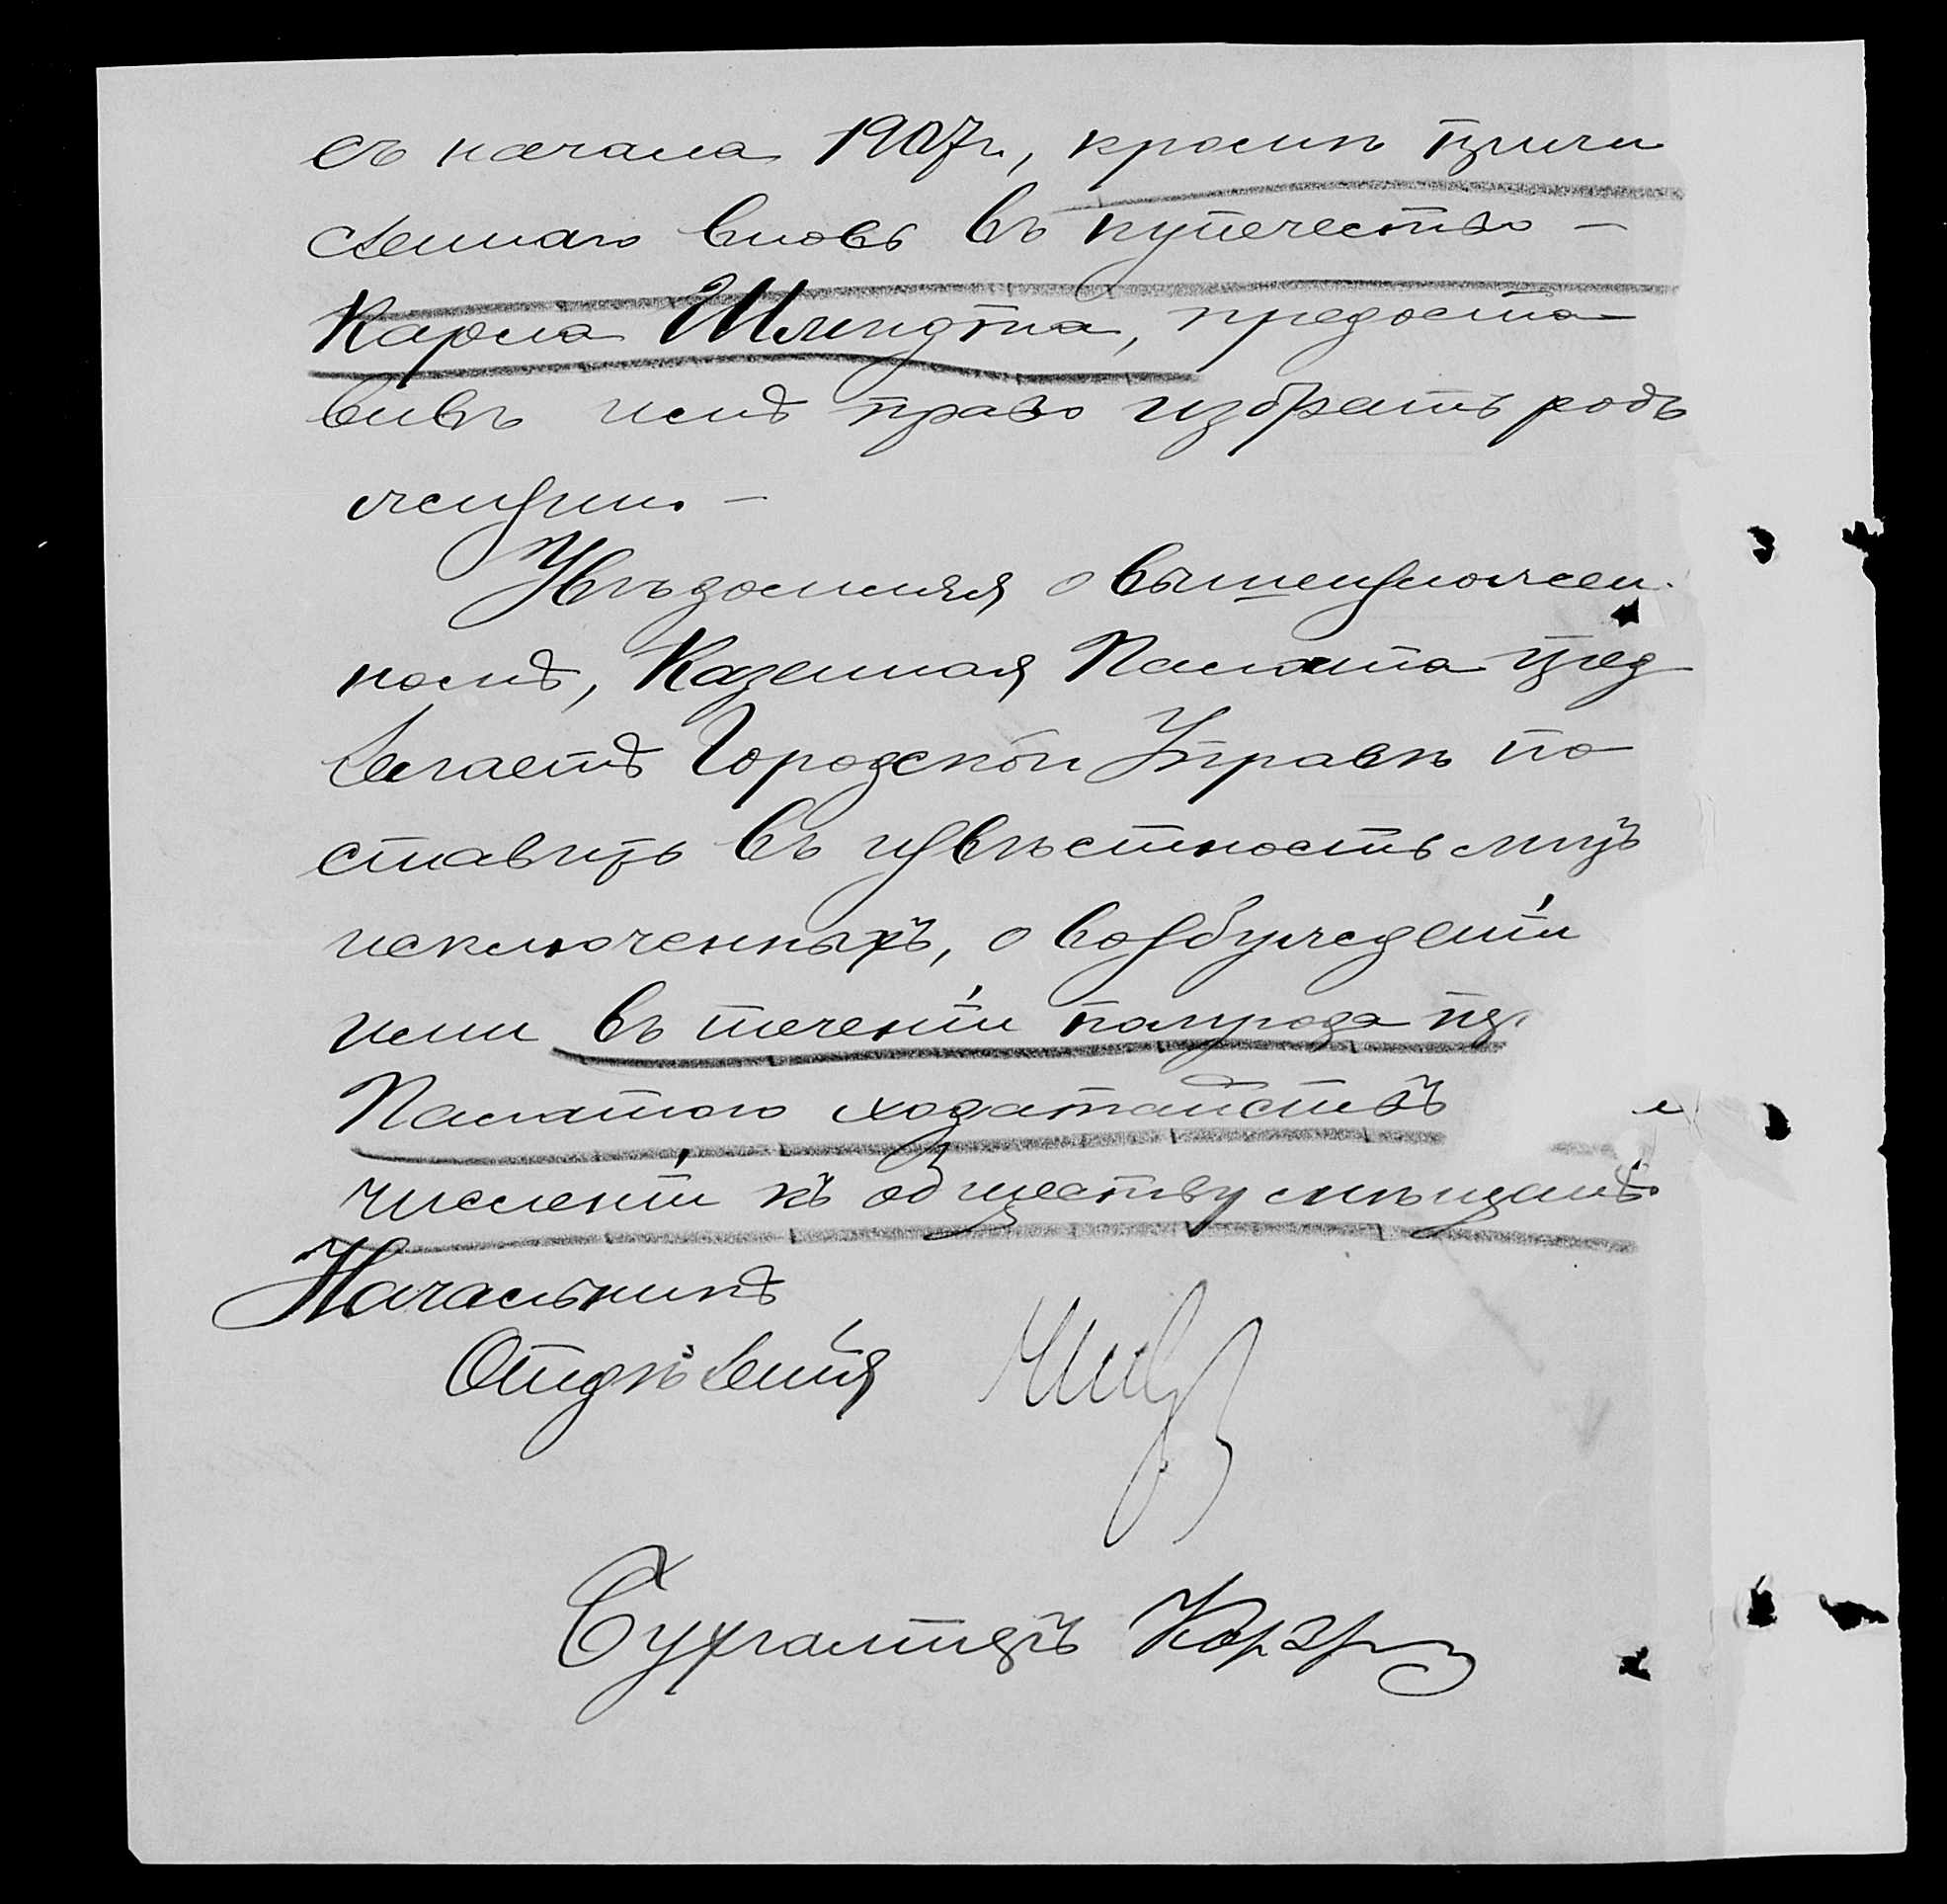 съ начала 1907 г., кромѣ причи
сленнаго вновь въ купечество –
Карла Шмидта, предоста
вивъ имъ право избрать родъ
жизни. –
Увѣдомляя о вышеизложен-
номъ, Казенная Палата пред
лагаетъ Городской Управѣ по
ставить въ извѣстность лицъ
исключенныхъ, о возбужденіи
ими въ теченіи полугода пр
Палатою ходатайствъ
численіи къ обществу мѣщанъ.
Начальникъ
Отдѣленія
Бухгалтеръ